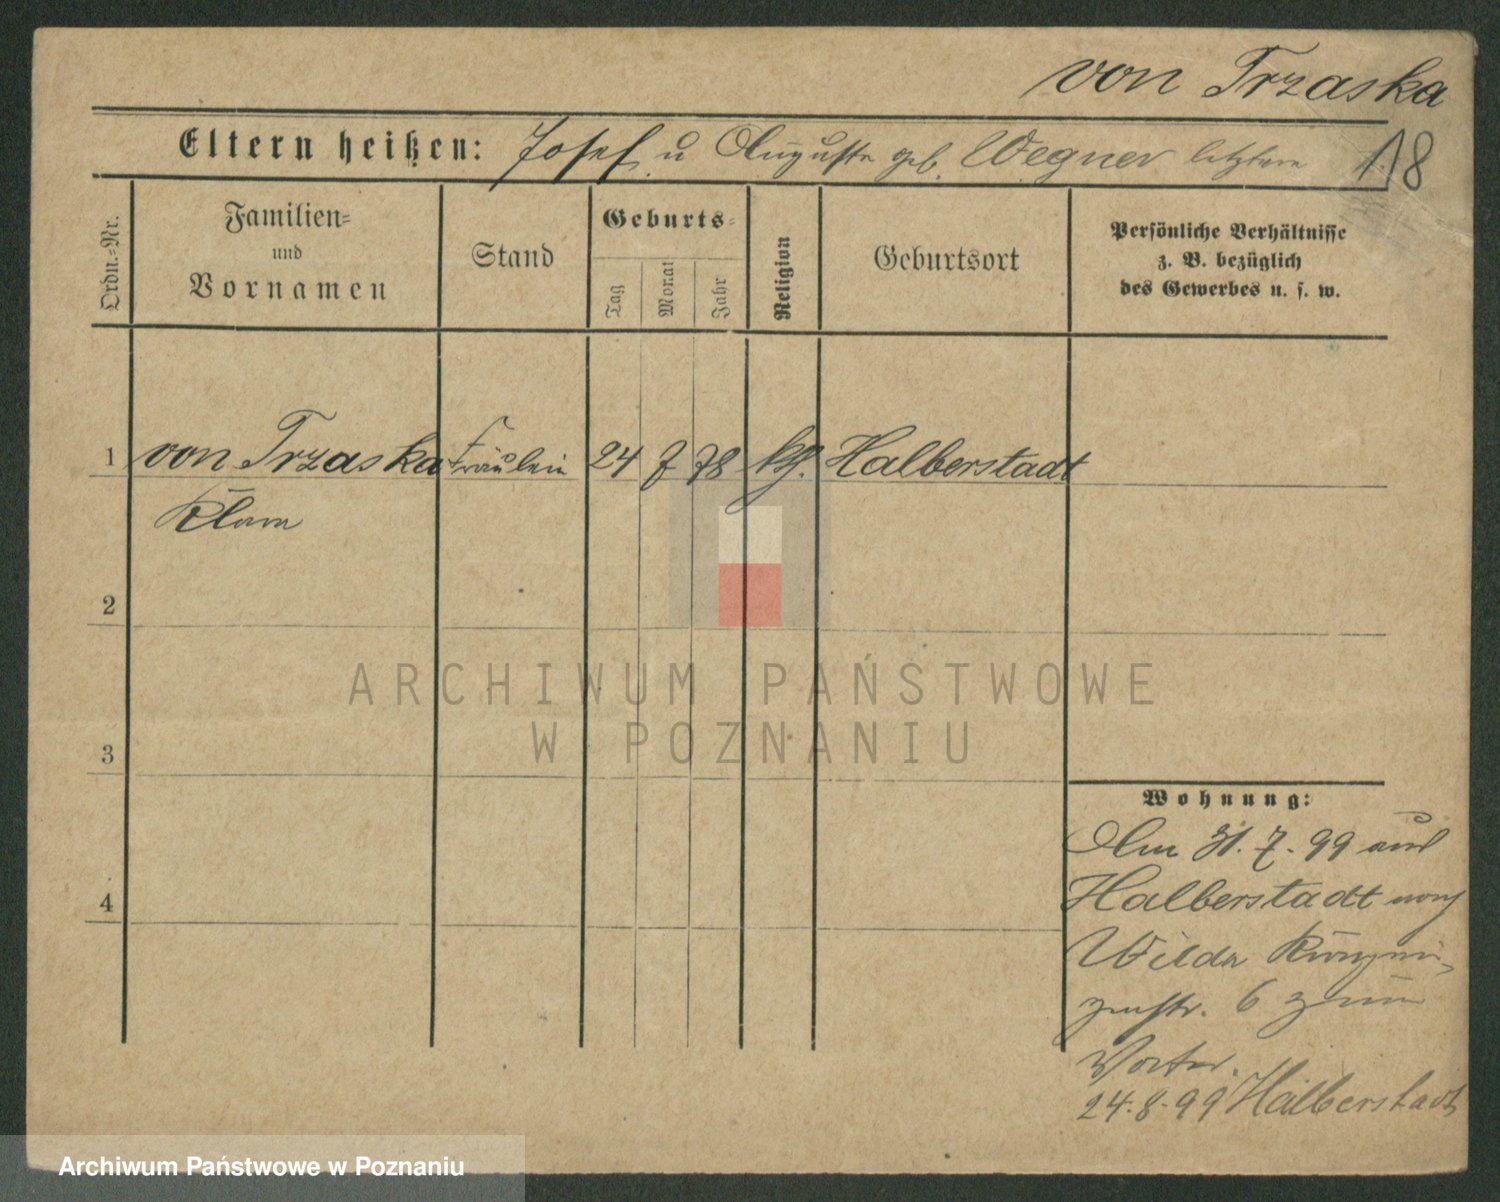 von Trzaska
Eltern heißen: Josef u Auguste geb. Wegner letztere
118
Ordn.-Nr.
Familien-
und
Vornamen
Stand
Geburts-
Tag
Monat
Jahr
Religion
Geburtsort
Persönliche Verhältnisse
z. B. bezüglich
des Gewerbes u. s. w.
1 von Trzaska Fräulein 24 7 78 kth. Halberstadt
Klara
2
ARCHIWUM PAŃSTWOWE
W POZNANIU
3
4
Wohnung:
Am 31.7.99 aus
Halberstadt nach
Wilda
6 zum
Vater.
24.8.99 Halberstadt
Archiwum Państwowe w Poznaniu